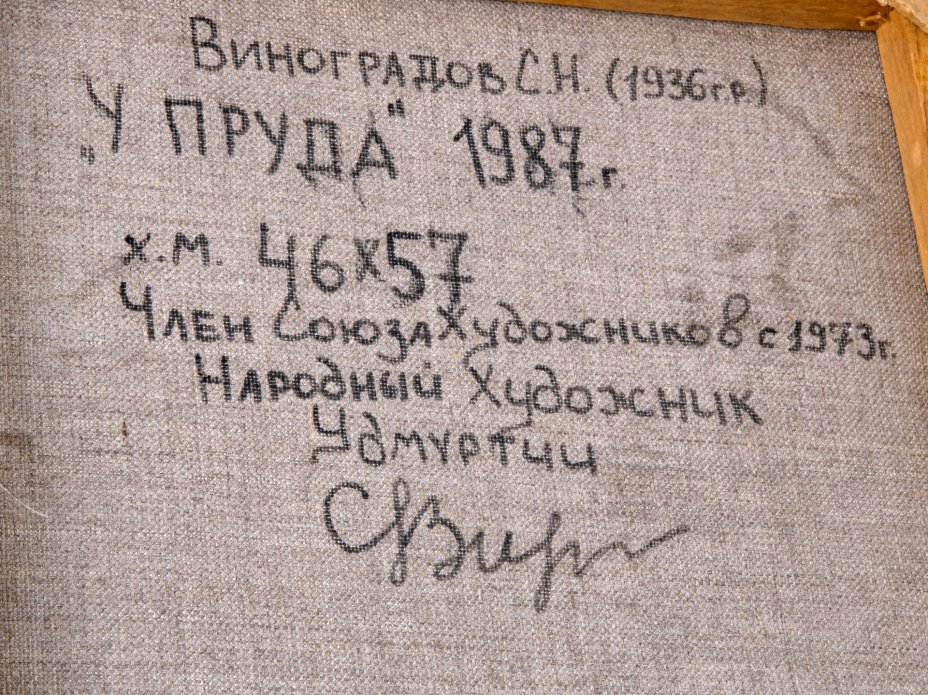 Виноградов С.Н. (1936г.р.)
„У ПРУДА" 1987г.
х.м. 46х57
Член Союза Художников с 1973г.
Народный Художник
Удмуртии